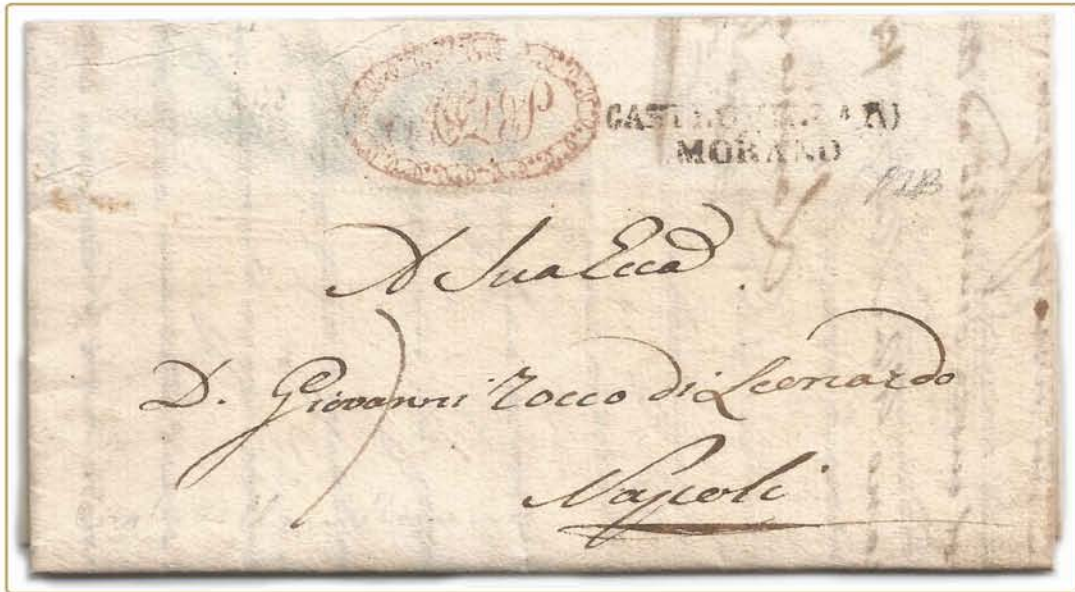 MORANO
A Sua Ecca
D. Giovanni Rocco di Leonardo
Napoli